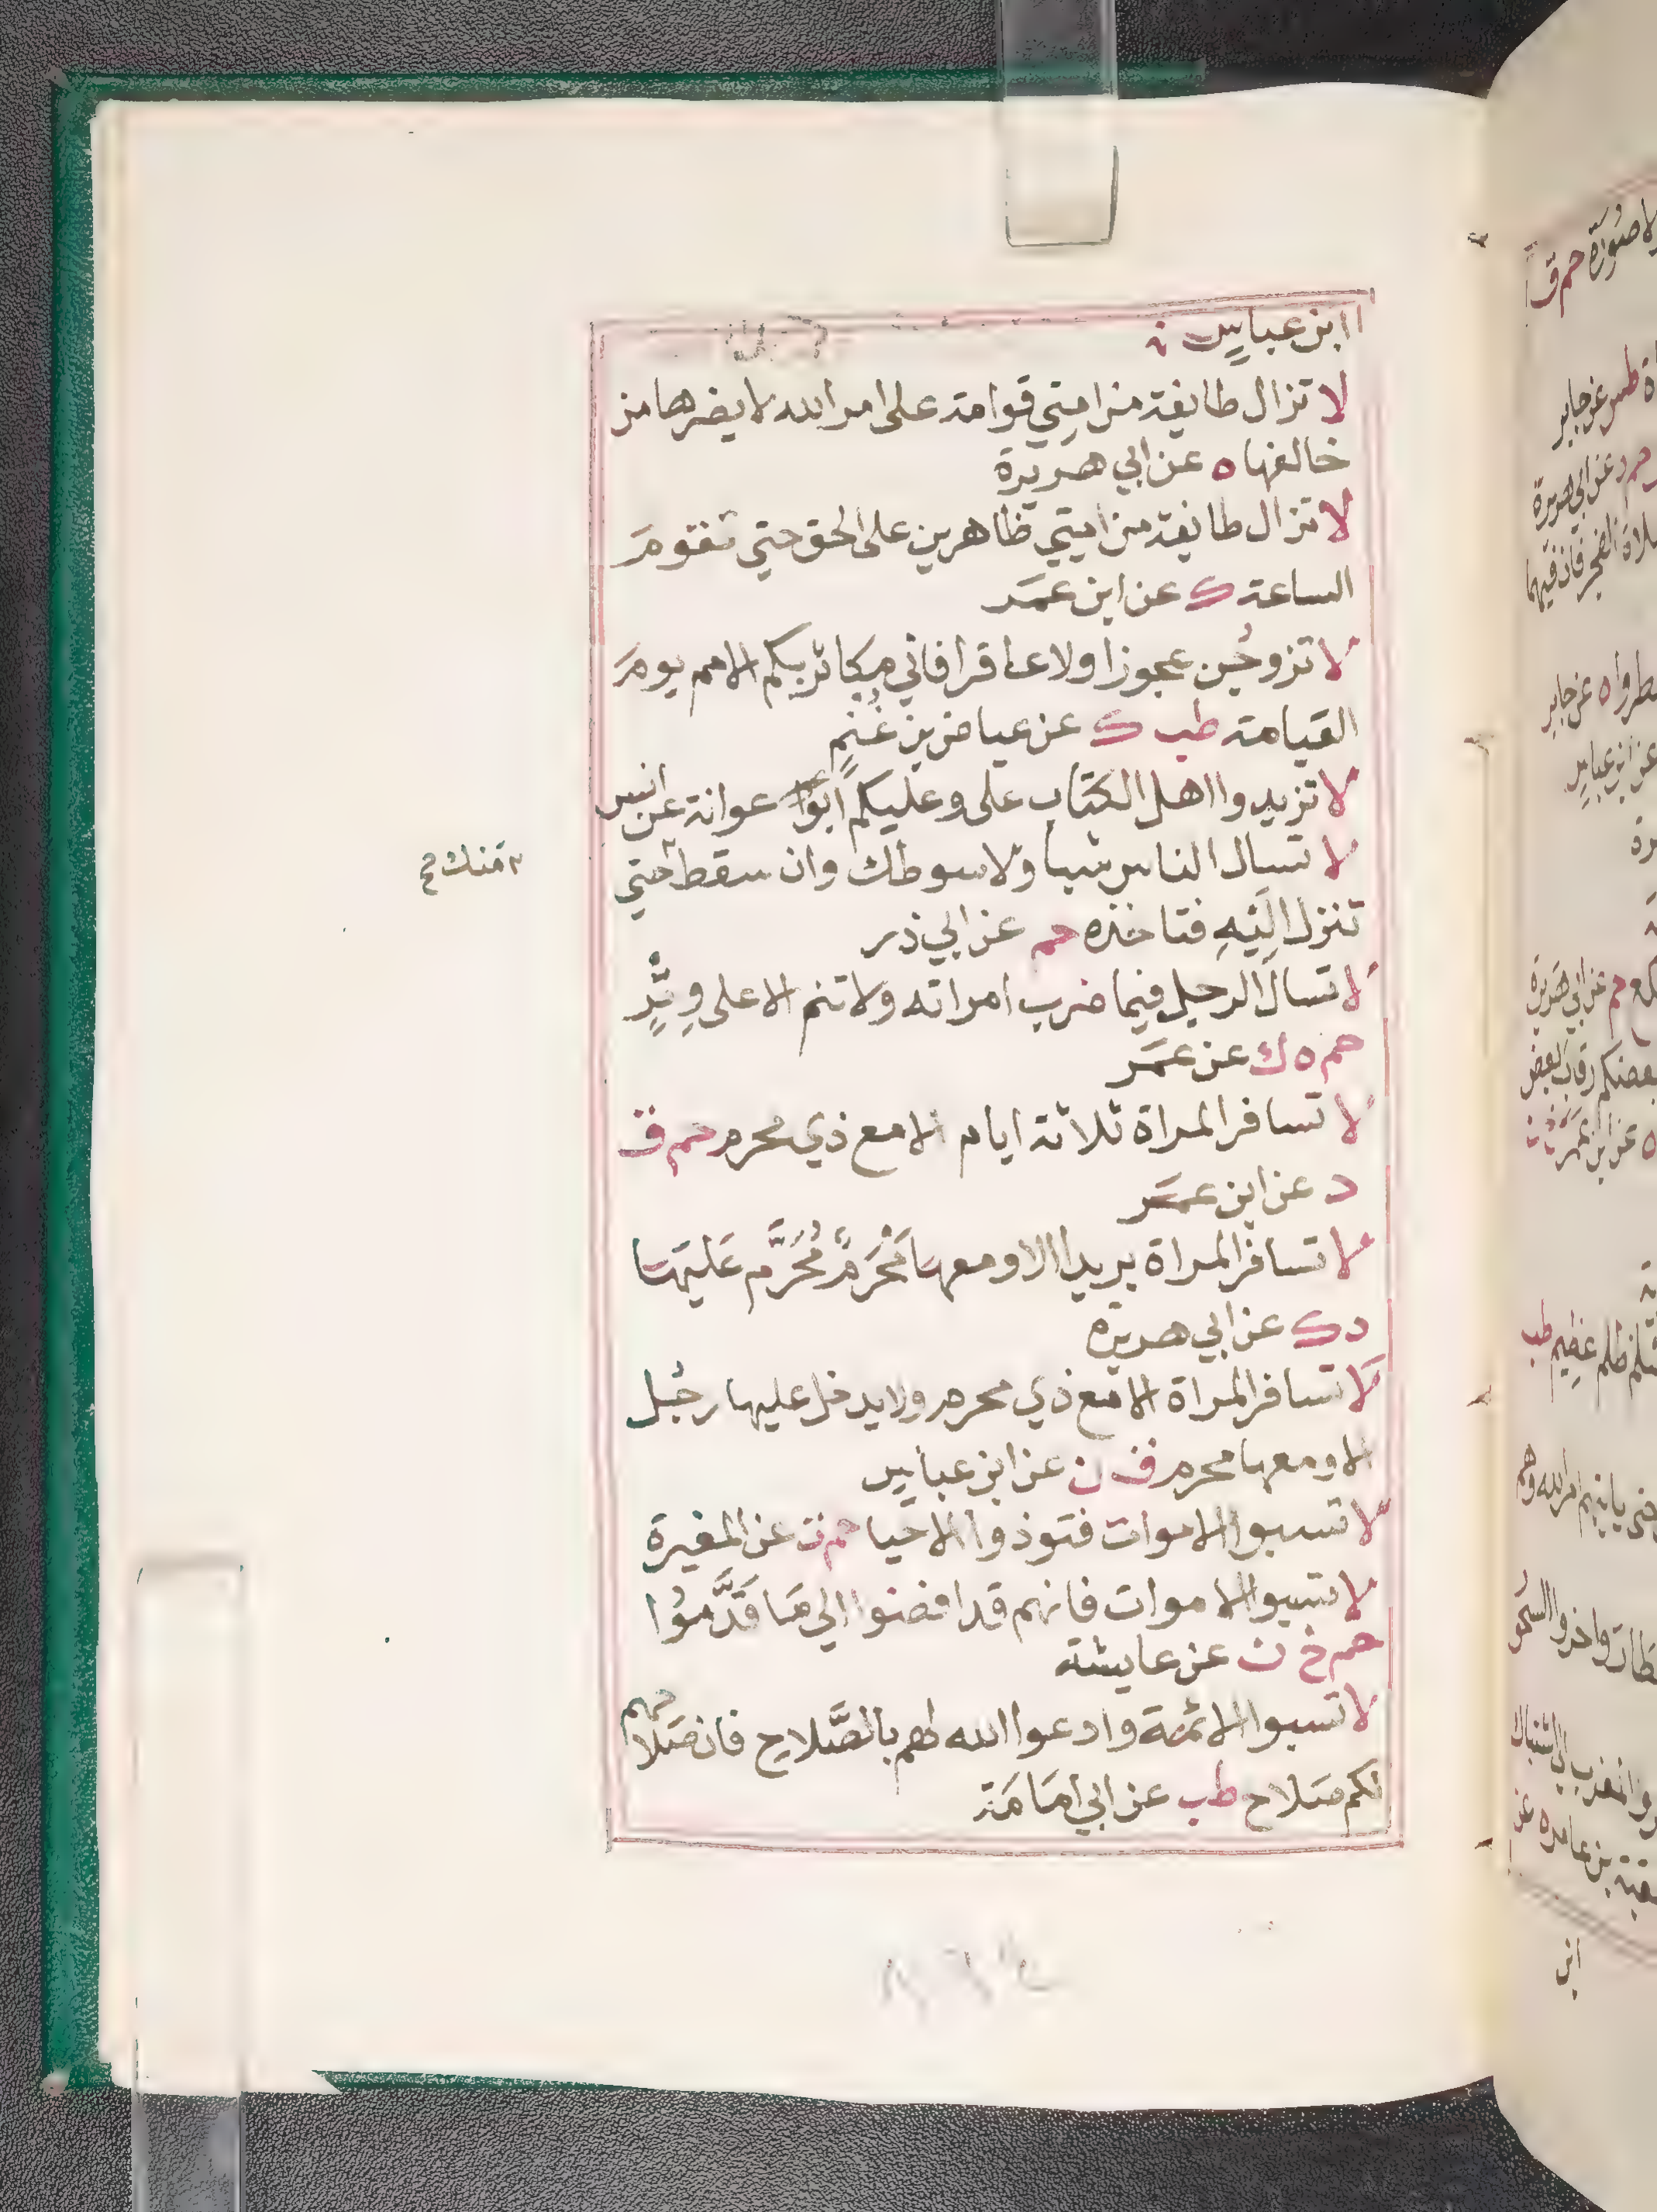 ابن عباس ن
لا تزال طايفة من امتي قوامة على امر الله لا يضرها من
خالفها ه عن ابي هريرة
لا تزال طايفة من امتي ظاهرين على الحق حتي تقوم
الساعة ك عن ابن عمر
لا تزوجن عجوزا ولا عاقرا فاني مكاثر بكم الامم يوم
القيامة طب ك عن عياض بن غنم
لا تزيدوا اهل الكتاب على وعليكم ابو عوانة عن انس
لا تسال الناس شيا ولا سوطك وان سقط حتي
منك صح
تنزل اليه فتاخذه حم عن ابي ذر
لا تسال الرجل فيما ضرب امراته ولا تنم الا على وتر
حم ه ك عن عمر
لا تسافر المراة ثلاثة ايام الا مع ذي محرم حم ق
د عن ابن عمر
لا تسافر المراة بريدا الا ومعها محرم محرم عليها
د ك عن ابي هريره
لا تسافر المراة الا مع ذي محرم ولا يدخل عليها رجل
الا ومعها محرم ق ن عن ابن عباس
لا تسبوا الاموات فتوذوا الاحيا حم ت عن المغيرة
لا تسبوا الاموات فانهم قد افضوا الي ما قدموا
حم خ ن عن عايشة
لا تسبوا الائمة وادعوا الله لهم بالصلاح فان صلاحهم
لكم صلاح طب عن ابي امامة